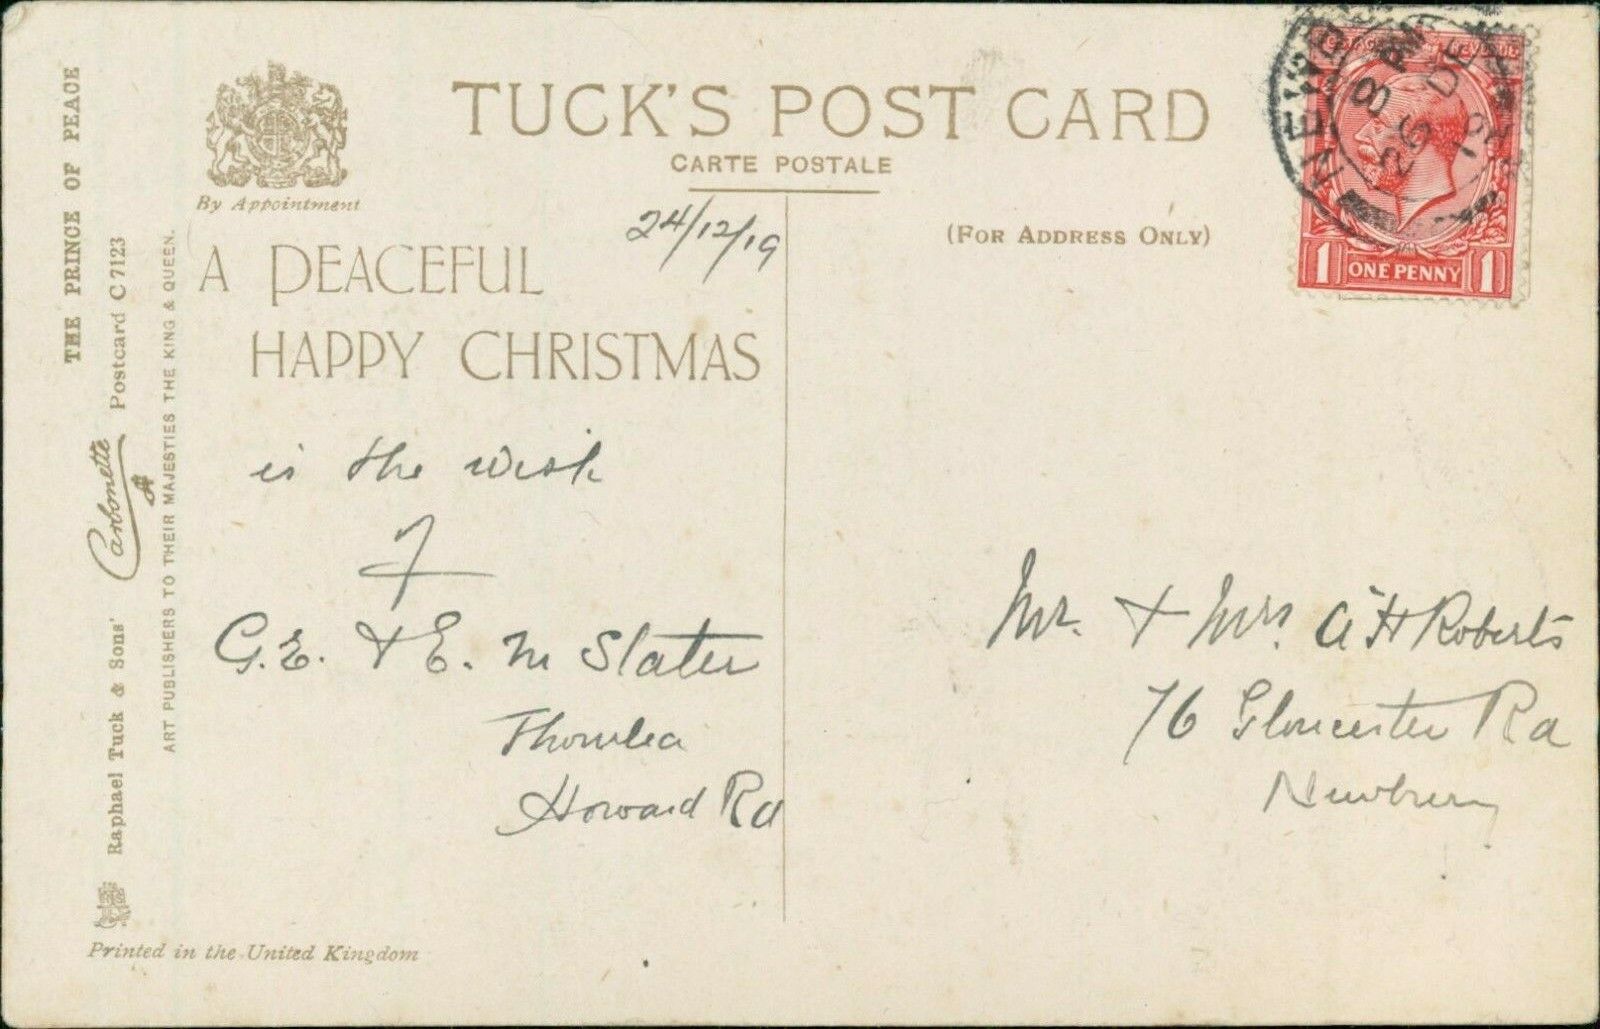 TUCK'S POST CARD
CARTE POSTALE
By Appointment
24/12/19
(FOR ADDRESS ONLY)
A PEACEFUL
HAPPY CHRISTMAS
is the wish
of
G.E. & E. M Slater
Howard Rd
Mr. & Mrs. A H Roberts
76 Gloucester Rd
Newbury
THE PRINCE OF PEACE
Raphael Tuck & Sons' Carbonette Postcard C 7123
ART PUBLISHERS TO THEIR MAJESTIES THE KING & QUEEN.
Printed in the United Kingdom
8 PM
26 DE
19
1 ONE PENNY 1